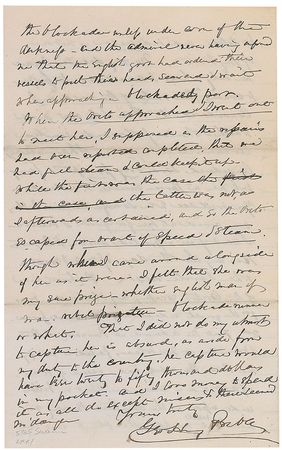 the blockade unless under cover of the
darkness - and the admiral never having informed
me that the English govt had ordered their
vessels to put their heads seaward I wait
when approaching a blockaded port.
When the Oreto approached I went out
to meet her, I supposed as the repairs
had been reported completed, that we
had full steam & could keep it up.
While the former was the case the first
is it case, and the latter was not, as
I afterwards ascertained, and so the Oreto
escaped for want of speed & steam.
though when I came around alongside
of her as it were. I felt that she was
my sure prize. whether english man of
war. rebel privateer - blockade runner
or what. That I did not do my utmost
to capture her is absurd, as aside from
my duty to the country. her capture would
have put thirty to fifty thousand dollars
in my pocket. and I love money to spend
it as all do except misers &
Yours truly
Geo H Preble